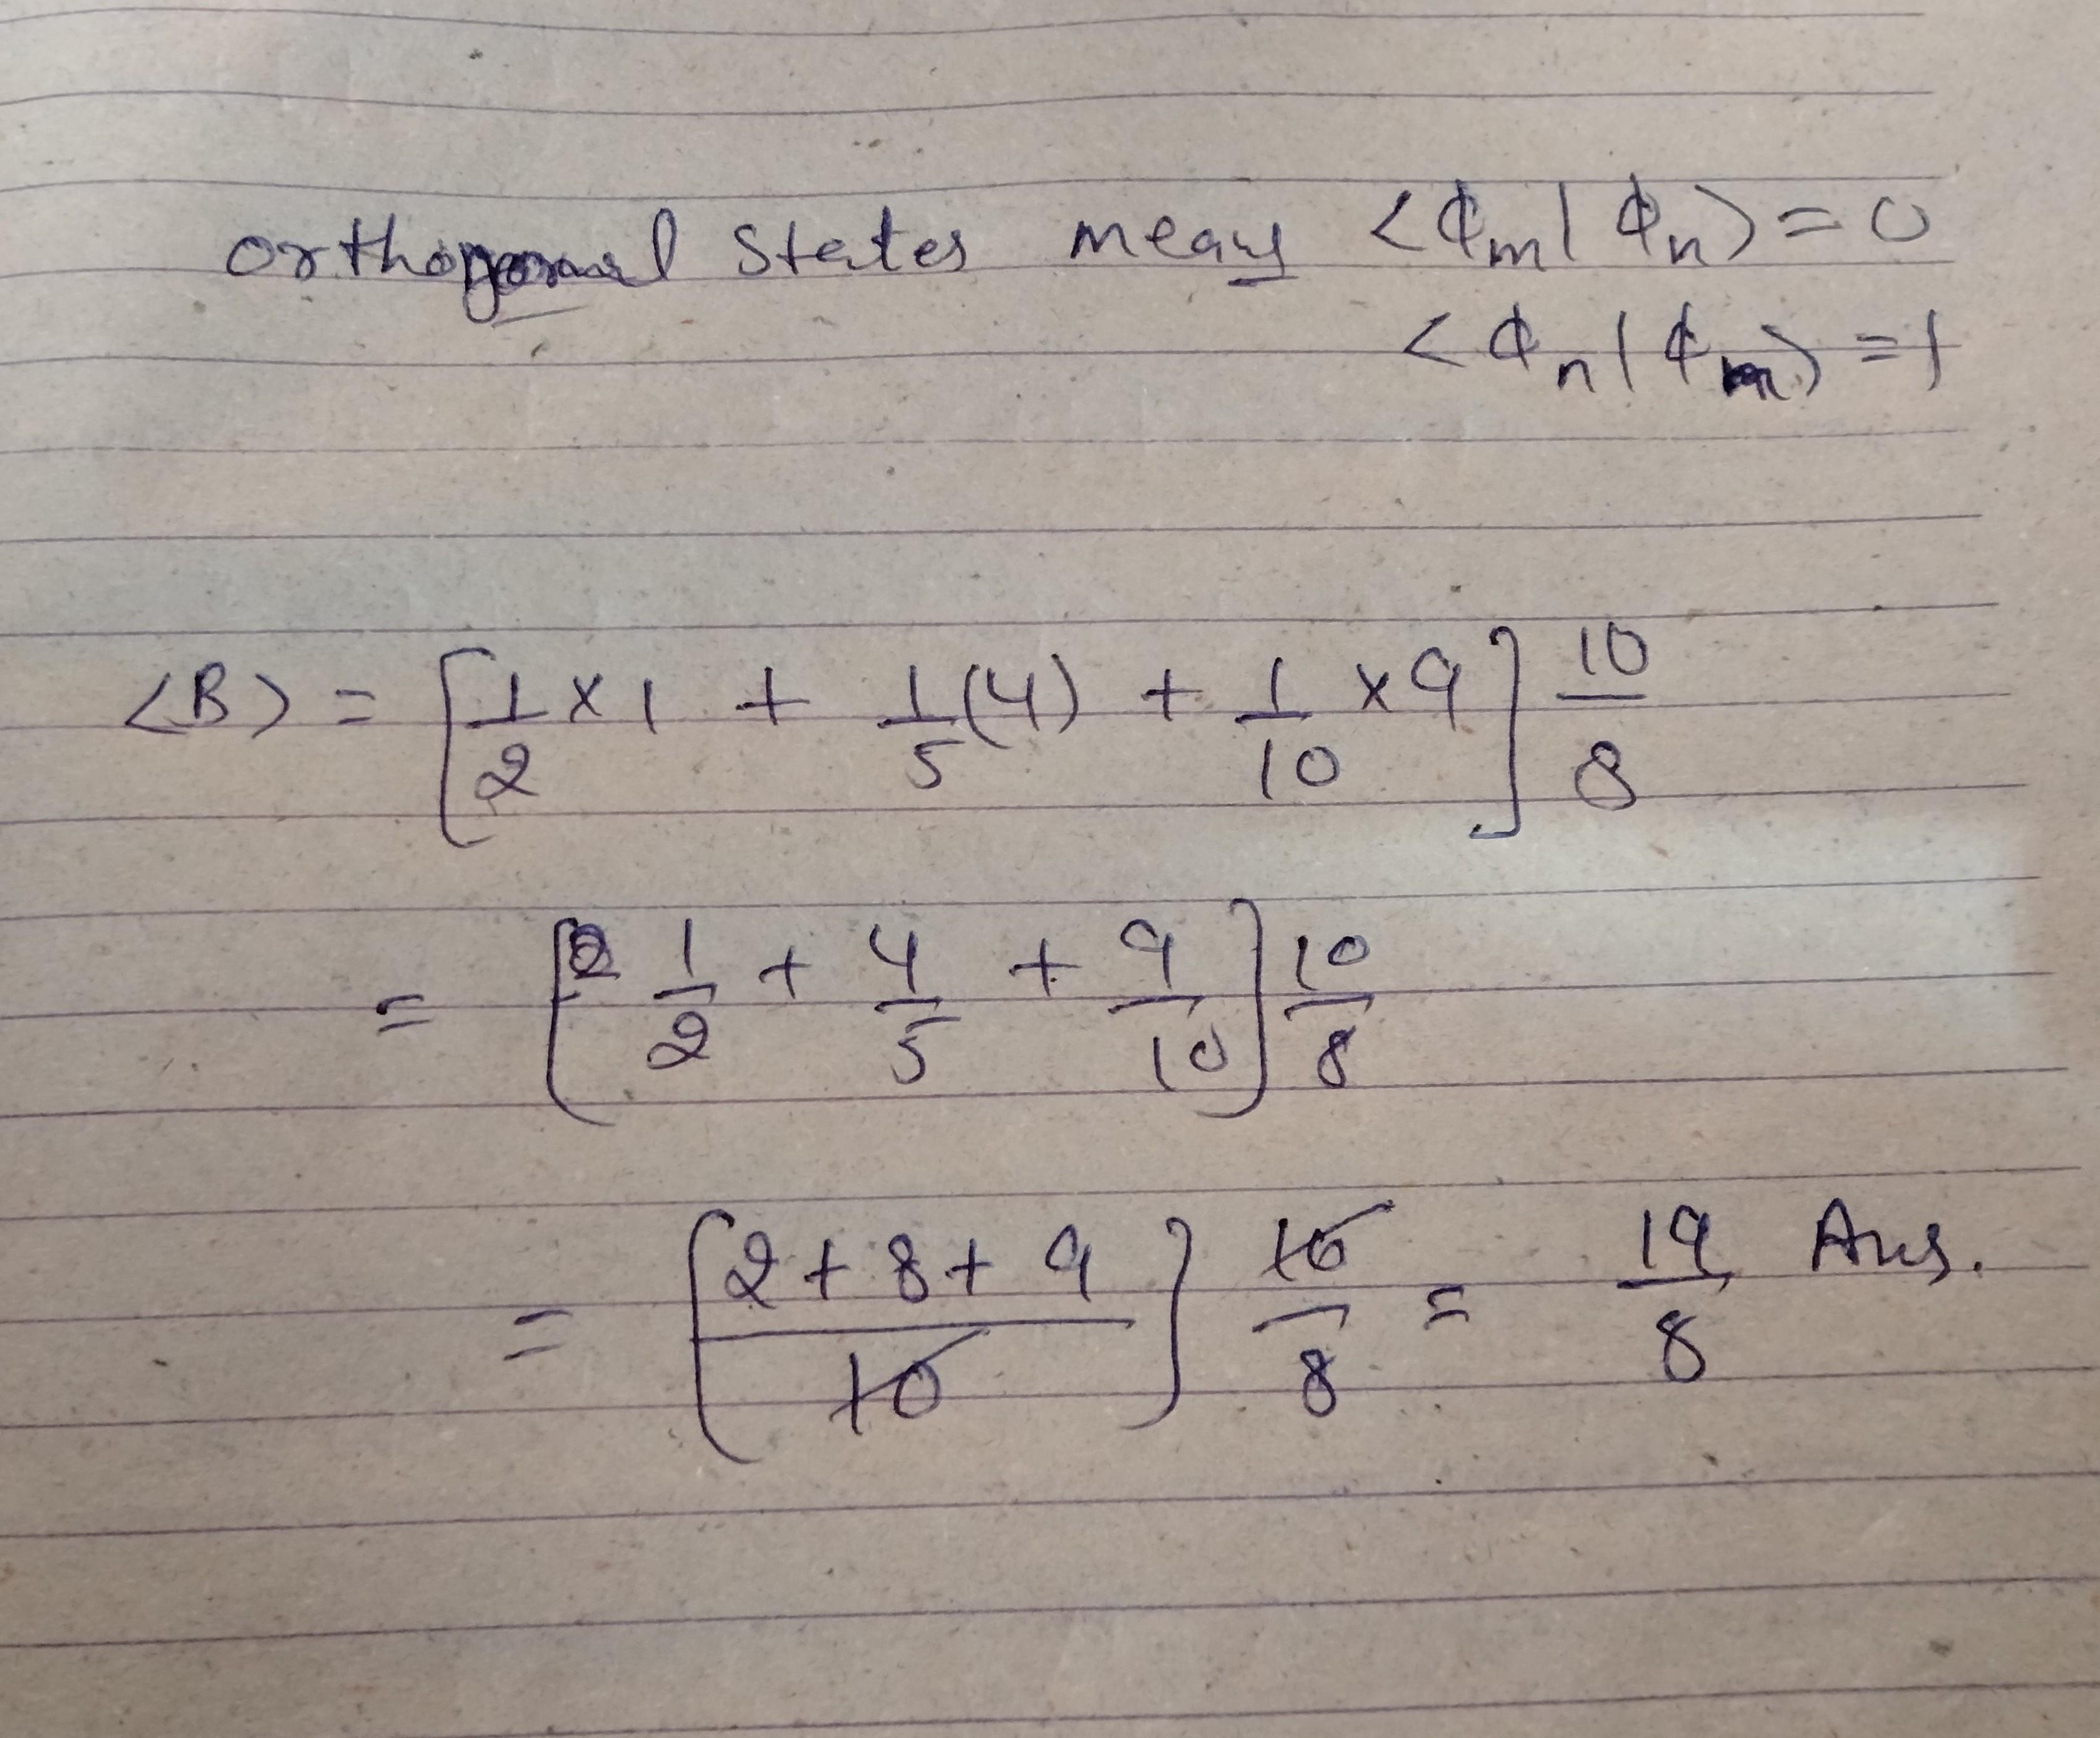 orthogonal states means <ϕₘ|ϕₙ> = 0
<ϕₙ|ϕₙ> = 1
<B> = [1/2 × 1 + 1/5 (4) + 1/10 × 9] 10/8
= [1/2 + 4/5 + 9/10] 10/8
= [(2 + 8 + 9)/10] 10/8 = 19/8 Ans.